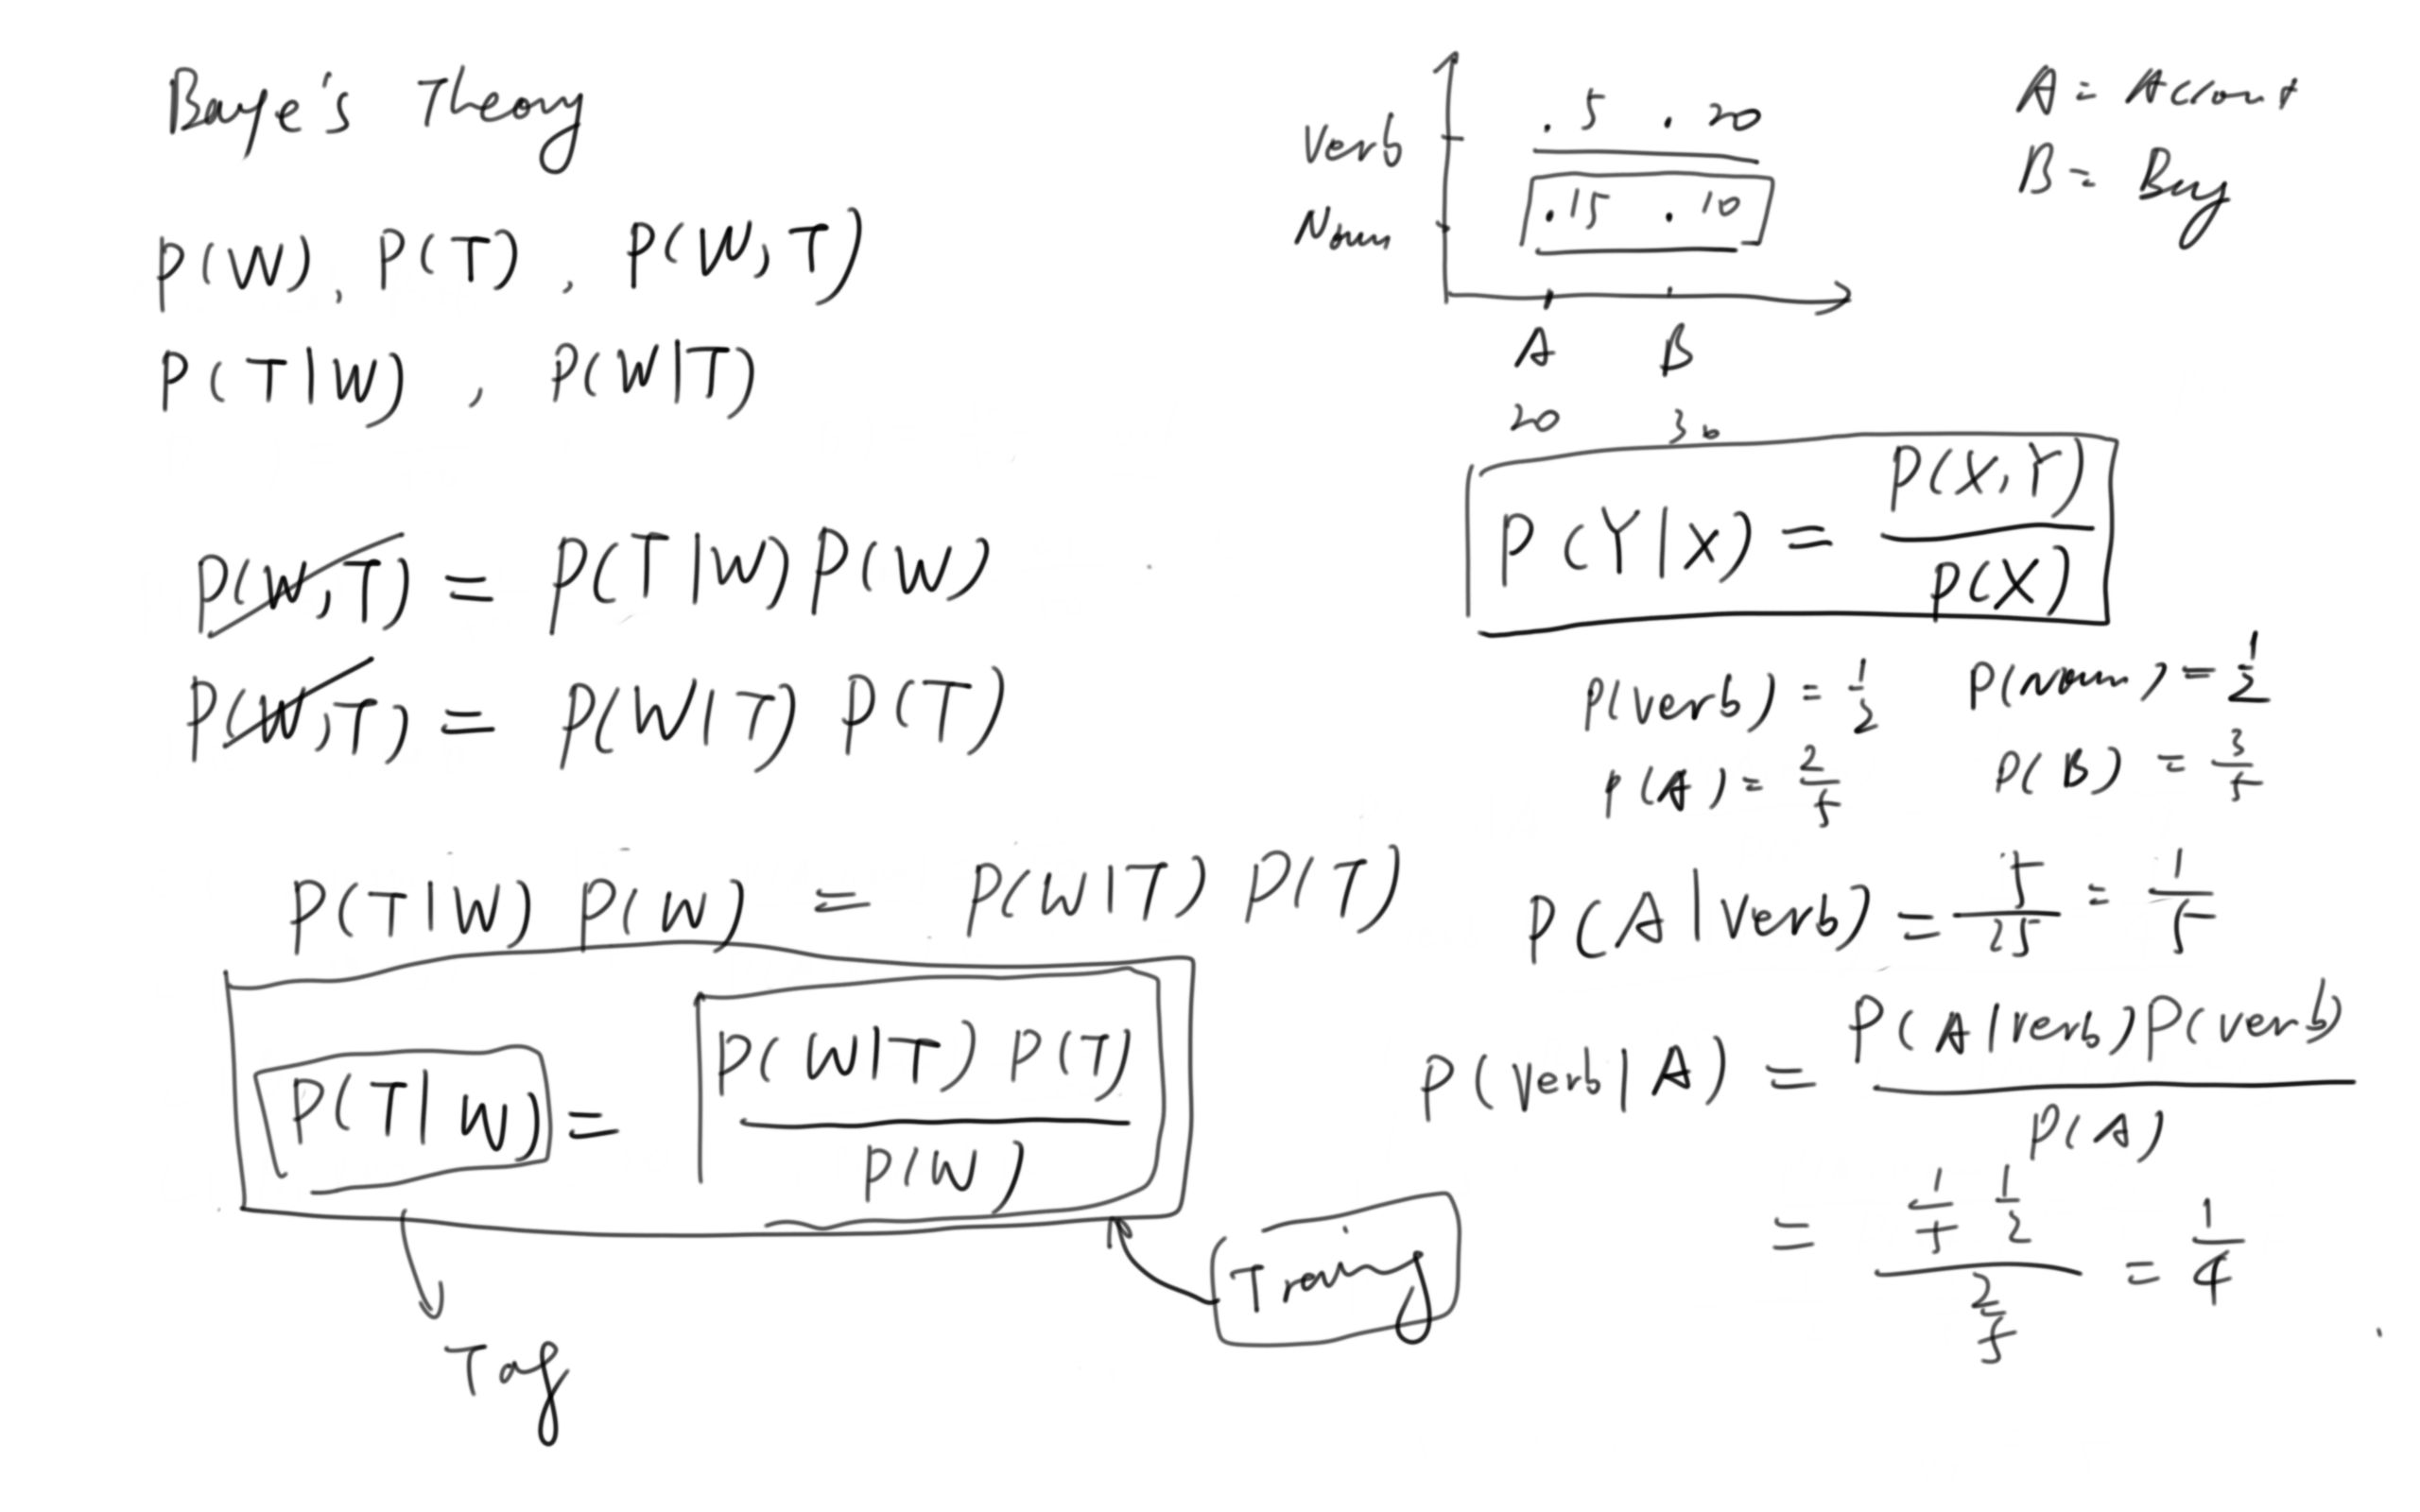 Baye's Theory
P(W), P(T), P(W,T)
P(T|W), P(W|T)
P(W,T) = P(T|W)P(W)
P(W,T) = P(W|T) P(T)
P(T|W) P(W) = P(W|T) P(T)
P(T|W) = P(W|T) P(T) / P(W)
Tag
Training
A = Account
B = Buy
Verb .5 .20
Noun .15 .10
A B
20 30
P(Y|X) = P(X,Y) / P(X)
P(Verb) = 1/2 P(Noun) = 1/2
P(A) = 2/5 P(B) = 3/5
P(A|Verb) = 5/25 = 1/5
P(Verb|A) = P(A|Verb)P(Verb) / P(A)
= 1/5 1/2 / 2/5 = 1/4